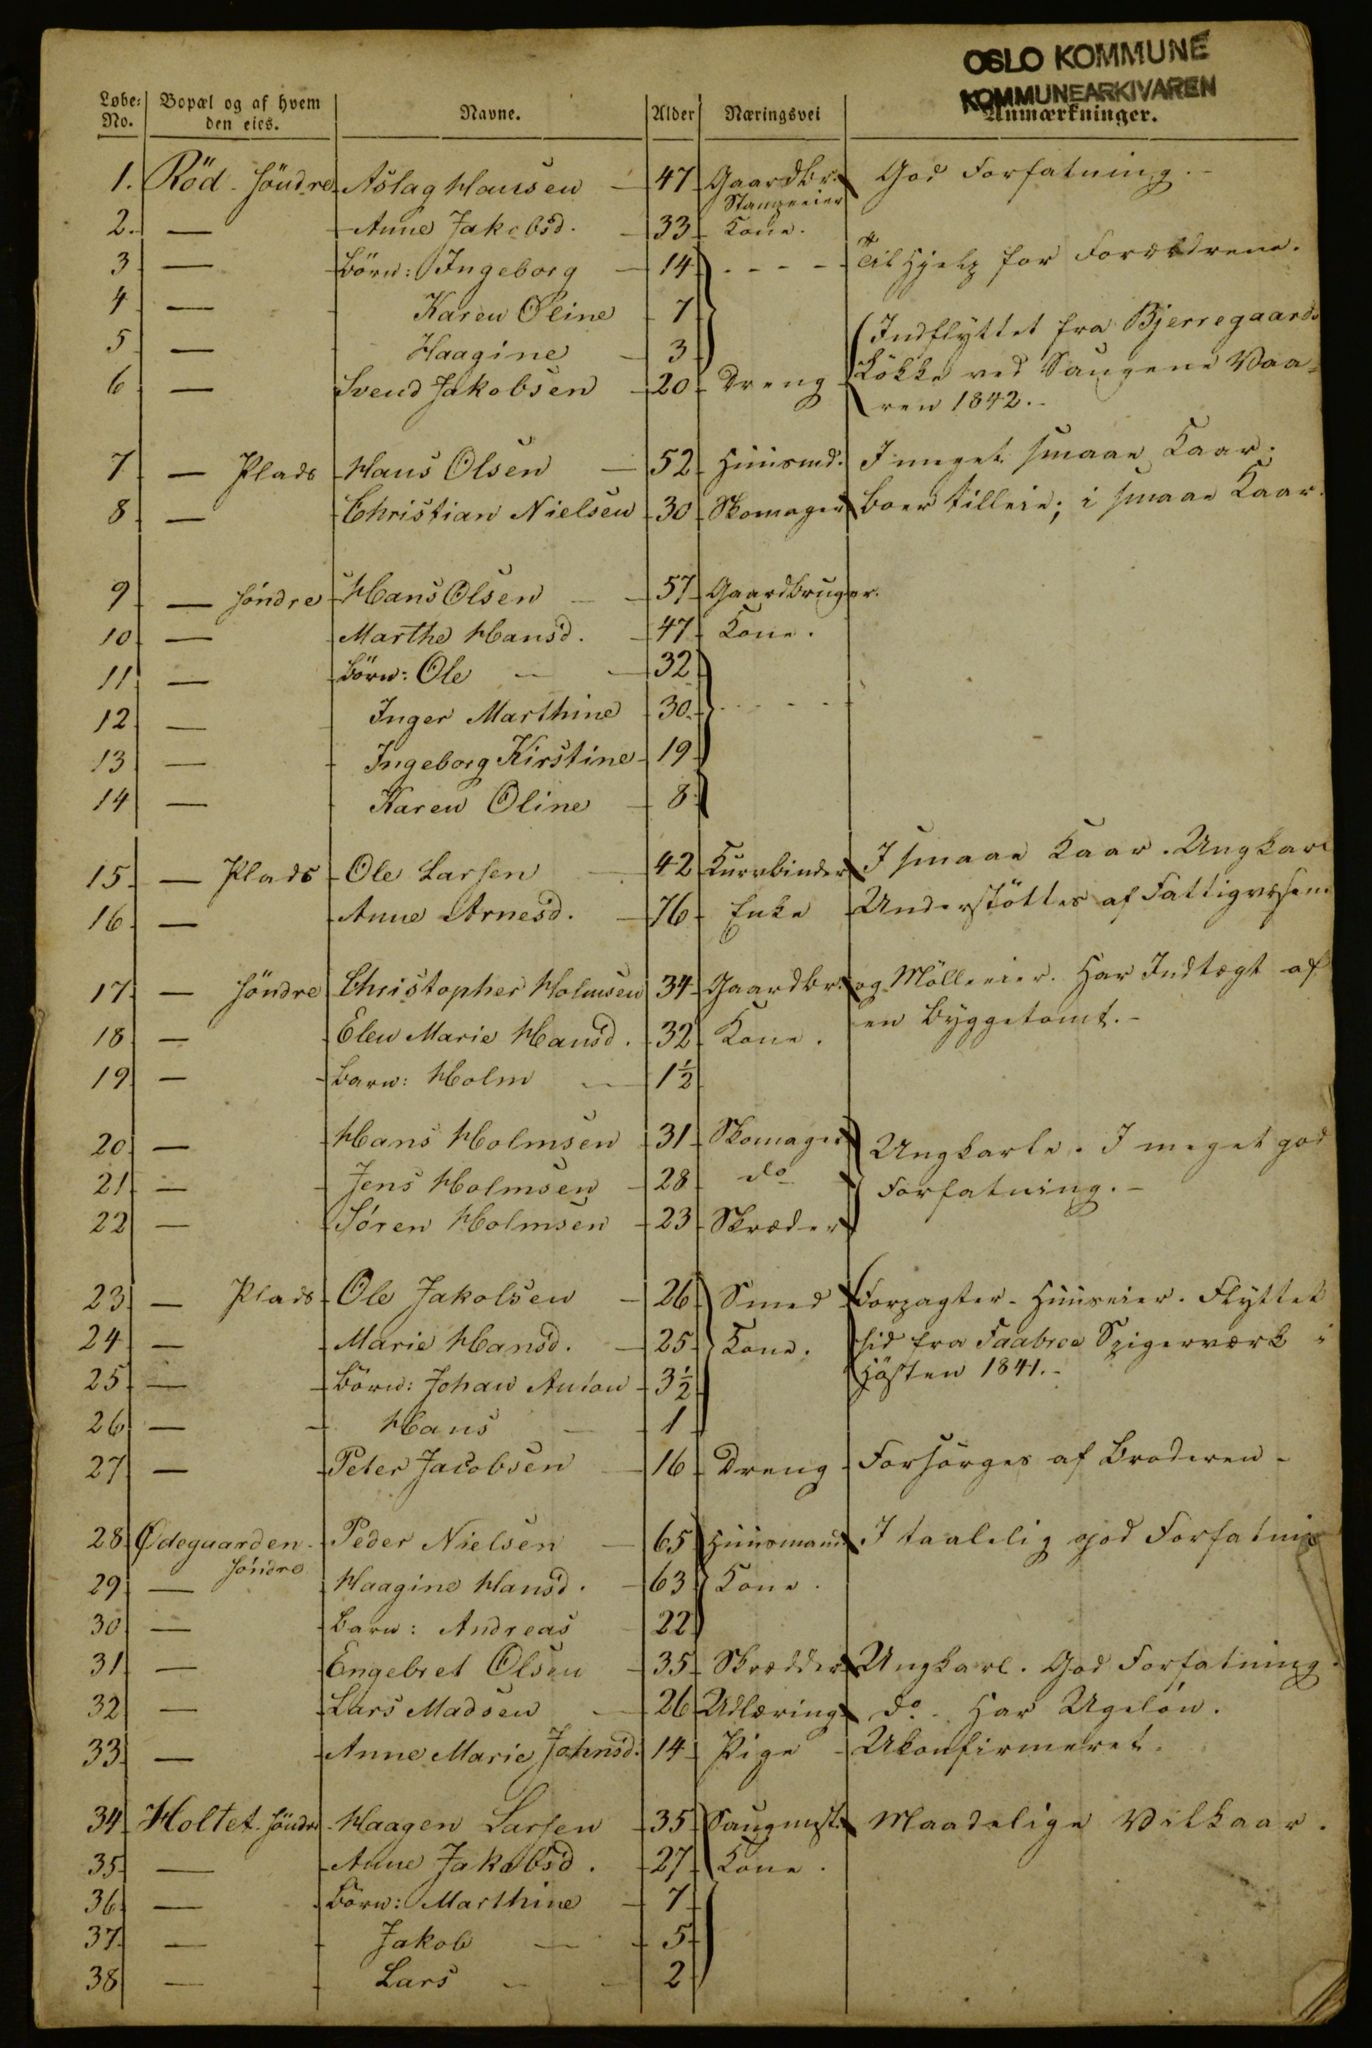 OSLO KOMMUNE
KOMMUNEARKIVAREN
Løbe- No. Bopæl og af hvem den eies. Navne. Alder Næringsvei Anmærkninger.
1. Röd Söndre Aslag Hansen 47 Gaardbr. Stampeeier God Forfatning.
2. — Anne Jakobsd. 33 Kone.
3 — Börn: Ingeborg 14 Til Hjelp for Forældrene.
4 — Karen Oline 7
5 — Haagine 3 (Indflyttet fra Bjerregaards
6 — Svend Jakobsen 20 Dreng Lökke ved Saugene Vaa-
ren 1842.
7 — Plads Hans Olsen 52 Huusmd. I meget smaae Kaar.
8 — Christian Nielsen 30 Skomager boer tilleie; i smaae Kaar.
9 — Söndre Hans Olsen 57 Gaardbruger.
10 — Marthe Hansd. 47 Kone.
11 — Börn: Ole 32
12 — Inger Marthine 30
13 — Ingeborg Kirstine 19
14 — Karen Oline 8
15 — Plads Ole Larsen 42 Kurvbinder I smaae Kaar. Ungkarl
16 — Anne Arnesd. 76 Enke Understöttes af Fattigvæsen
17 — Söndre Christopher Holmsen 34 Gaardbr. og Mölleeier. Har Indtægt af
18 — Elen Marie Hansd. 32 Kone. en Byggetomt.
19 — Barn: Holm 1½
20 — Hans Holmsen 31 Skomager Ungkarle. I meget god
21 — Jens Holmsen 28 do Forfatning.
22 — Sören Holmsen 23 Skræder
23 — Plads Ole Jakobsen 26 Smed Forpagter. Huuseier. Flyttet
24 — Marie Hansd. 25 Kone. hid fra Faabroe Spigerværk i
25 — Börn: Johan Anton 3½ Hösten 1841.
26 — Hans 1
27 — Peter Jacobsen 16 Dreng Forsörges af Broderen
28 Ödegaarden Söndre Peder Nielsen 65 Huusmand I taalelig god Forfatning
29 — Haagine Hansd. 63 Kone.
30 — Barn: Andreas 22
31 — Engebret Olsen 35 Skrædder Ungkarl. God Forfatning.
32 — Lars Madsen 26 Udlæring do. Har Ugelön.
33 — Anne Marie Johnsd. 14 Pige Ukonfirmeret.
34 Holtet Söndre Haagen Larsen 35 Saugmest. Maadelige Vilkaar.
35 — Anne Jakobsd. 27 Kone.
36 — Börn: Marthine 7
37 — Jakob 5
38 — Lars 2